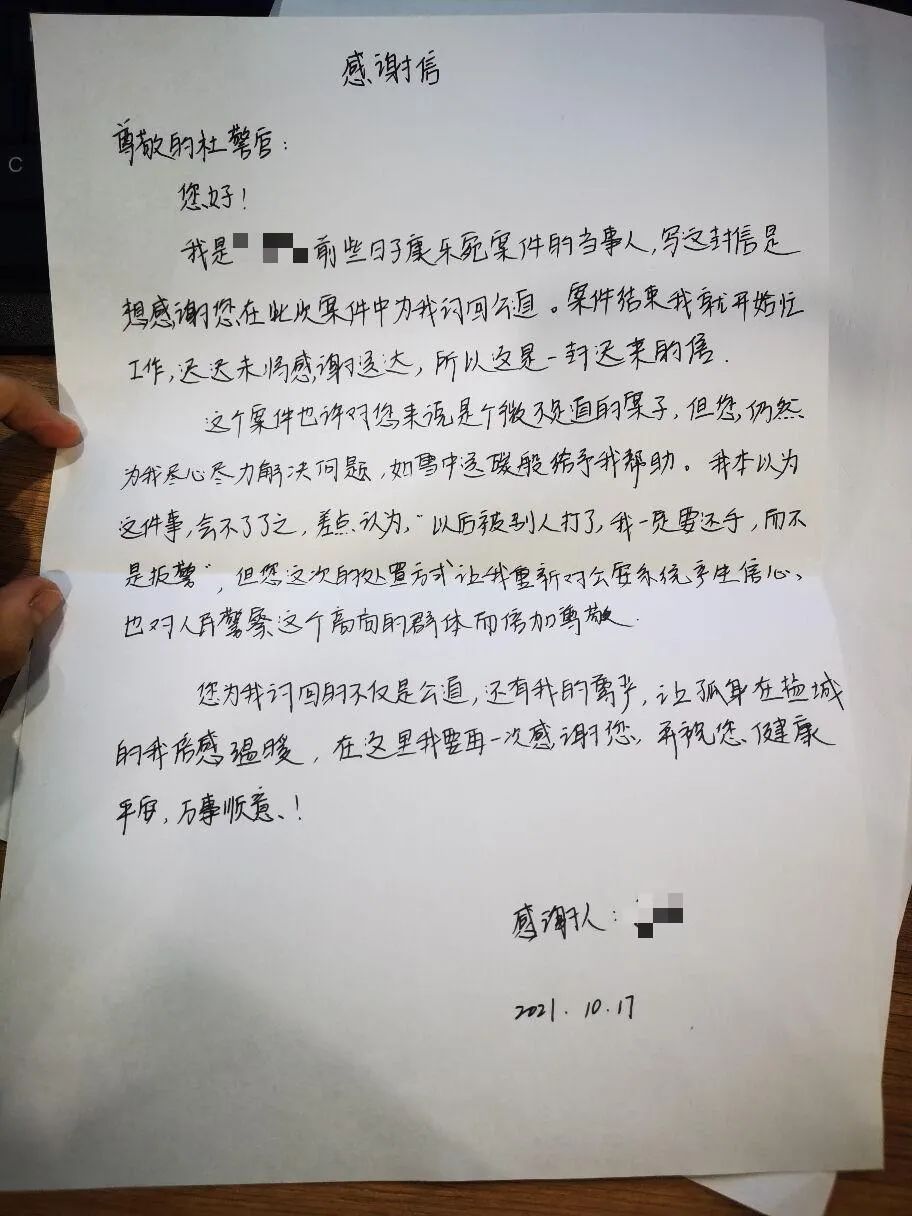 感谢信
尊敬的杜警官：
您好！
我是前些日子康乐苑案件的当事人，写这封信是
想感谢您在此次案件中为我讨回公道。案件结束我就开始忙
工作，迟迟未将感谢送达，所以这是一封迟来的信.
这个案件也许对您来说是个微不足道的案子，但您仍然
为我尽心尽力解决问题，如雪中送碳般给予我帮助。我本以为
这件事，会不了了之，差点认为，“以后被别人打了，我一定要还手，而不
是报警”，但您这次的处置方式让我重新对公安系统产生信心，
也对人民警察这个高尚的群体而倍加尊敬.
您为我讨回的不仅是公道，还有我的尊严，让孤身在盐城
的我倍感温暖，在这里我要再一次感谢您，再祝您健康
平安，万事顺意！
感谢人：
2021.10.17
C